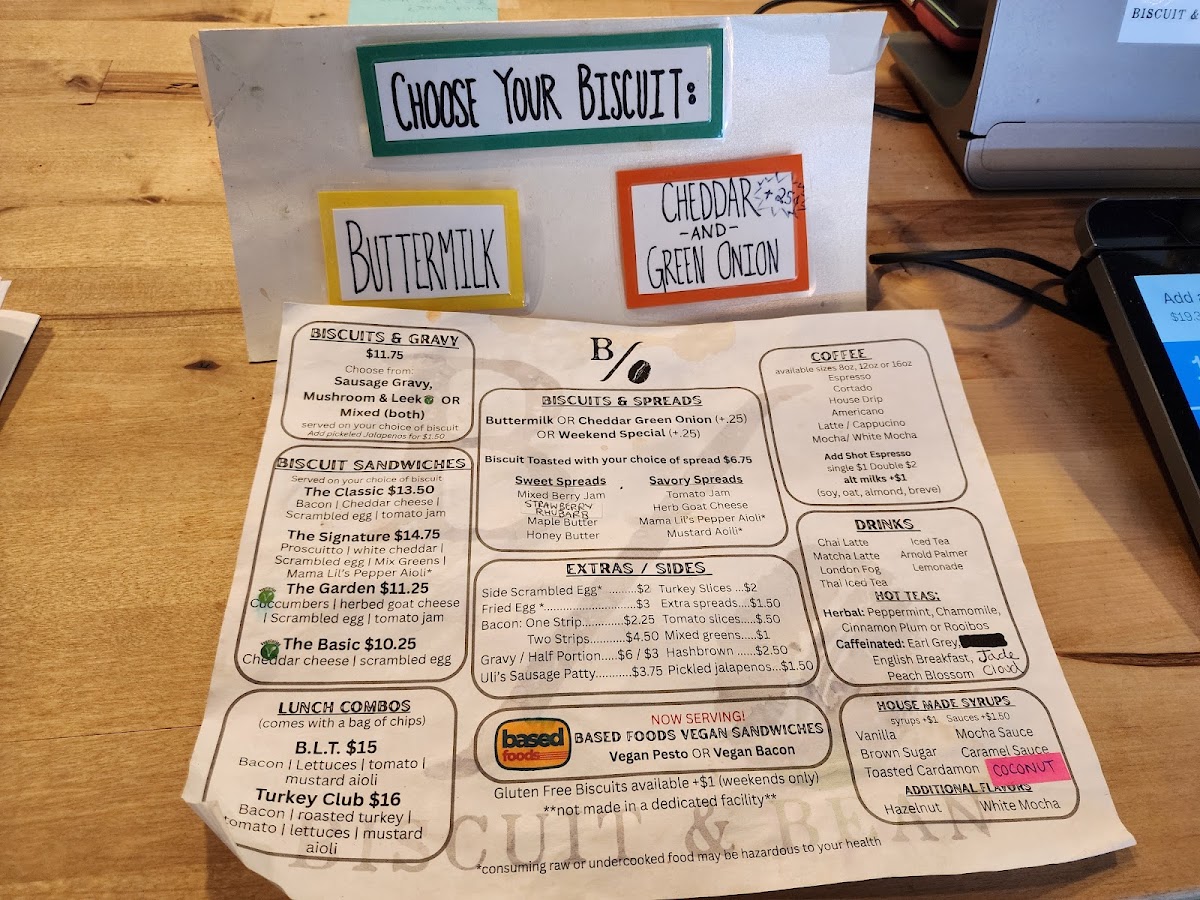 BISCUIT &
CHOOSE YOUR BISCUIT:
BUTTERMILK
CHEDDAR +.25
-AND-
GREEN ONION
Add a
$19.3
B/
BISCUITS & GRAVY
$11.75
Choose from:
Sausage Gravy,
Mushroom & Leek OR
Mixed (both)
served on your choice of biscuit
Add pickeled Jalapenos for $1.50
BISCUIT SANDWICHES
Served on your choice of biscuit
The Classic $13.50
Bacon | Cheddar cheese |
Scrambled egg | tomato jam
The Signature $14.75
Proscuitto | white cheddar |
Scrambled egg | Mix Greens |
Mama Lil's Pepper Aioli*
The Garden $11.25
Cuccumbers | herbed goat cheese
| Scrambled egg | tomato jam
The Basic $10.25
Cheddar cheese | scrambled egg
LUNCH COMBOS
(comes with a bag of chips)
B.L.T. $15
Bacon | Lettuces | tomato |
mustard aioli
Turkey Club $16
Bacon | roasted turkey |
tomato | lettuces | mustard
aioli
BISCUITS & SPREADS
Buttermilk OR Cheddar Green Onion (+.25)
OR Weekend Special (+.25)
Biscuit Toasted with your choice of spread $6.75
Sweet Spreads
Mixed Berry Jam
STRAWBERRY
RHUBARB
Maple Butter
Honey Butter
Savory Spreads
Tomato Jam
Herb Goat Cheese
Mama Lil's Pepper Aioli*
Mustard Aoili*
EXTRAS / SIDES
Side Scrambled Egg* .........$2 Turkey Slices ...$2
Fried Egg *.......................$3 Extra spreads....$1.50
Bacon: One Strip............$2.25 Tomato slices.....$.50
Two Strips.........$4.50 Mixed greens.....$1
Gravy / Half Portion.....$6 / $3 Hashbrown ......$2.50
Uli's Sausage Patty..........$3.75 Pickled jalapenos...$1.50
based
foods
NOW SERVING!
BASED FOODS VEGAN SANDWICHES
Vegan Pesto OR Vegan Bacon
Gluten Free Biscuits available +$1 (weekends only)
**not made in a dedicated facility**
BISCUIT & BEAN
*consuming raw or undercooked food may be hazardous to your health
COFFEE
available sizes 8oz, 12oz or 16oz
Espresso
Cortado
House Drip
Americano
Latte / Cappucino
Mocha/ White Mocha
Add Shot Espresso
single $1 Double $2
alt milks +$1
(soy, oat, almond, breve)
DRINKS
Chai Latte Iced Tea
Matcha Latte Arnold Palmer
London Fog Lemonade
Thai Iced Tea
HOT TEAS:
Herbal: Peppermint, Chamomile,
Cinnamon Plum or Rooibos
Caffeinated: Earl Grey,
English Breakfast, Jade
Peach Blossom Cloud
HOUSE MADE SYRUPS
syrups +$1 Sauces +$1.50
Vanilla Mocha Sauce
Brown Sugar Caramel Sauce
Toasted Cardamon COCONUT
ADDITIONAL FLAVORS
Hazelnut White Mocha